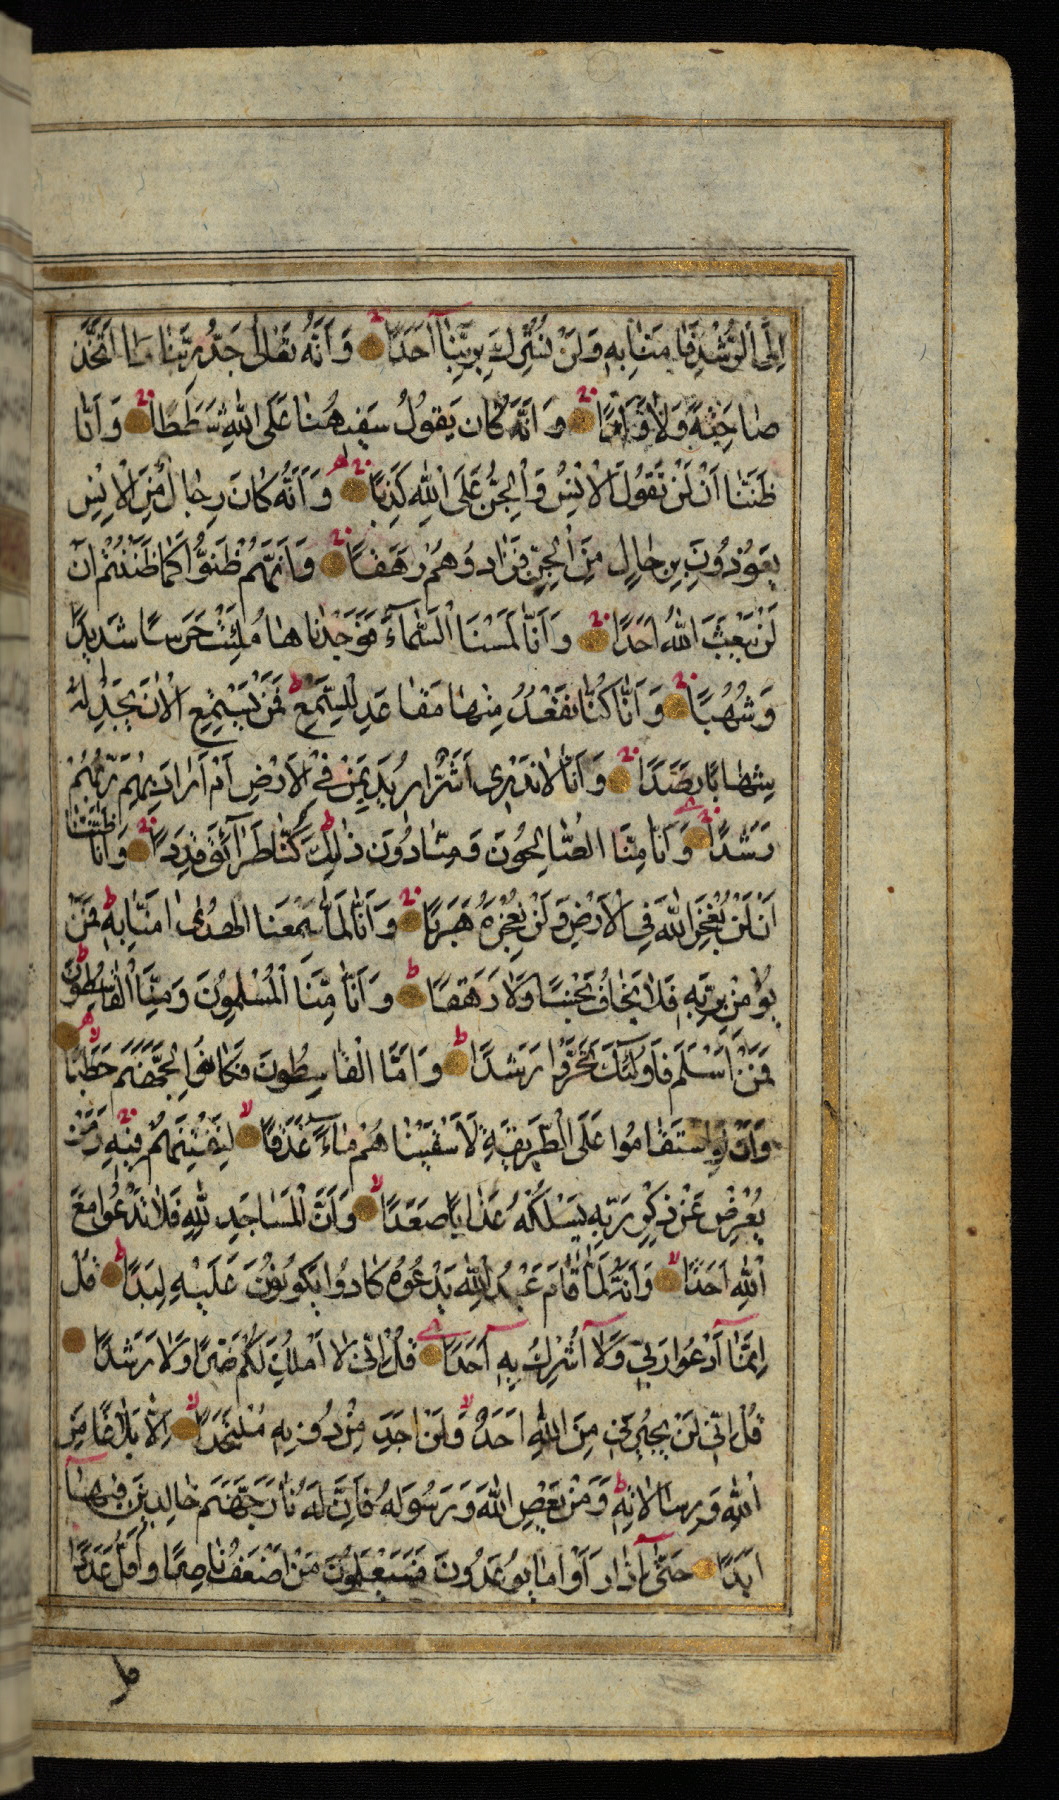 اِلَى الرُّشْدِ فَاٰمَنَّا بِهٖ وَلَنْ نُشْرِكَ بِرَبِّنَآ اَحَدًا وَاَنَّهُ تَعَالٰى جَدُّ رَبِّنَا مَا اتَّخَذَ
صَاحِبَةً وَلَا وَلَدًا وَاَنَّهُ كَانَ يَقُولُ سَفِيهُنَا عَلَى اللّٰهِ شَطَطًا وَاَنَّا
ظَنَنَّا اَنْ لَنْ تَقُولَ الْاِنْسُ وَالْجِنُّ عَلَى اللّٰهِ كَذِبًا وَاَنَّهُ كَانَ رِجَالٌ مِنَ الْاِنْسِ
يَعُوذُونَ بِرِجَالٍ مِنَ الْجِنِّ فَزَادُوهُمْ رَهَقًا وَاَنَّهُمْ ظَنُّوا كَمَا ظَنَنْتُمْ اَنْ
لَنْ يَبْعَثَ اللّٰهُ اَحَدًا وَاَنَّا لَمَسْنَا السَّمَآءَ فَوَجَدْنَاهَا مُلِئَتْ حَرَسًا شَدِيدًا
وَشُهُبًا وَاَنَّا كُنَّا نَقْعُدُ مِنْهَا مَقَاعِدَ لِلسَّمْعِ فَمَنْ يَسْتَمِعِ الْاٰنَ يَجِدْ لَهُ
شِهَابًا رَصَدًا وَاَنَّا لَا نَدْرِي اَشَرٌّ اُرِيدَ بِمَنْ فِي الْاَرْضِ اَمْ اَرَادَ بِهِمْ رَبُّهُمْ
رَشَدًا وَاَنَّا مِنَّا الصَّالِحُونَ وَمِنَّا دُونَ ذٰلِكَ كُنَّا طَرَآئِقَ قِدَدًا وَاَنَّا ظَنَنَّا
اَنْ لَنْ نُعْجِزَ اللّٰهَ فِي الْاَرْضِ وَلَنْ نُعْجِزَهُ هَرَبًا وَاَنَّا لَمَّا سَمِعْنَا الْهُدٰى اٰمَنَّا بِهٖ فَمَنْ
يُؤْمِنْ بِرَبِّهٖ فَلَا يَخَافُ بَخْسًا وَلَا رَهَقًا وَاَنَّا مِنَّا الْمُسْلِمُونَ وَمِنَّا الْقَاسِطُونَ
فَمَنْ اَسْلَمَ فَاُولٰئِكَ تَحَرَّوْا رَشَدًا وَاَمَّا الْقَاسِطُونَ فَكَانُوا لِجَهَنَّمَ حَطَبًا
وَاَنْ لَوِ اسْتَقَامُوا عَلَى الطَّرِيقَةِ لَاَسْقَيْنَاهُمْ مَآءً غَدَقًا لِنَفْتِنَهُمْ فِيهِ وَمَنْ
يُعْرِضْ عَنْ ذِكْرِ رَبِّهٖ يَسْلُكْهُ عَذَابًا صَعَدًا وَاَنَّ الْمَسَاجِدَ لِلّٰهِ فَلَا تَدْعُوا مَعَ
اللّٰهِ اَحَدًا وَاَنَّهُ لَمَّا قَامَ عَبْدُ اللّٰهِ يَدْعُوهُ كَادُوا يَكُونُونَ عَلَيْهِ لِبَدًا قُلْ
اِنَّمَآ اَدْعُوا رَبِّي وَلَآ اُشْرِكُ بِهٖ اَحَدًا قُلْ اِنِّي لَا اَمْلِكُ لَكُمْ ضَرًّا وَلَا رَشَدًا
قُلْ اِنِّي لَنْ يُجِيرَنِي مِنَ اللّٰهِ اَحَدٌ وَلَنْ اَجِدَ مِنْ دُونِهٖ مُلْتَحَدًا اِلَّا بَلَاغًا مِنَ
اللّٰهِ وَرِسَالَاتِهٖ وَمَنْ يَعْصِ اللّٰهَ وَرَسُولَهُ فَاِنَّ لَهُ نَارَ جَهَنَّمَ خَالِدِينَ فِيهَآ
اَبَدًا حَتّٰى اِذَا رَاَوْا مَا يُوعَدُونَ فَسَيَعْلَمُونَ مَنْ اَضْعَفُ نَاصِرًا وَاَقَلُّ عَدَدًا